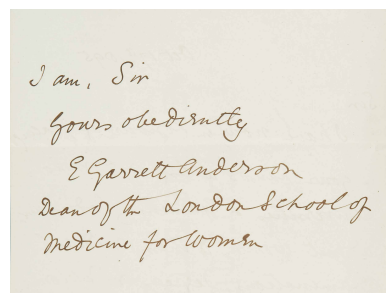 I am, Sir
Yours obediently
E Garrett Anderson
Dean of the London School of
Medicine for Women